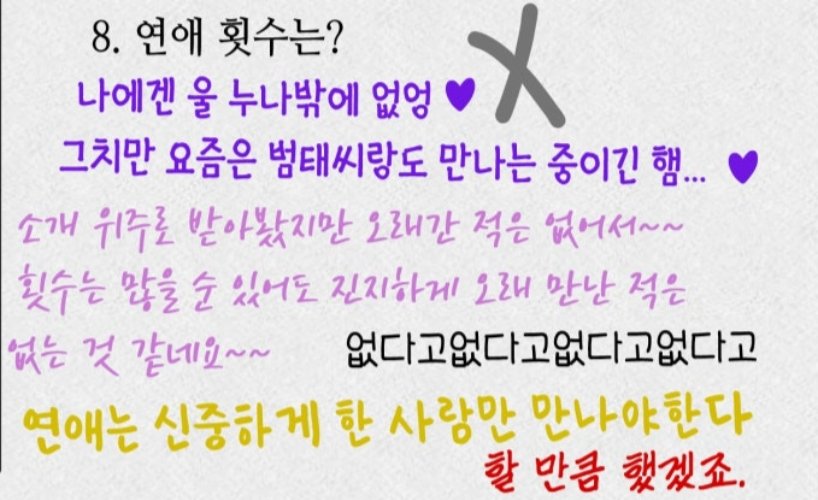 8. 연애 횟수는?
나에겐 울 누나밖에 없엉 ♥
그치만 요즘은 범태씨랑도 만나는 중이긴 햄... ♥
소개 위주로 받아봤지만 오래간 적은 없어서~~
횟수는 많을 순 있어도 진지하게 오래 만난 적은
없는 것 같네요~~
없다고없다고없다고없다고
연애는 신중하게 한 사람만 만나야한다
할 만큼 했겠죠.